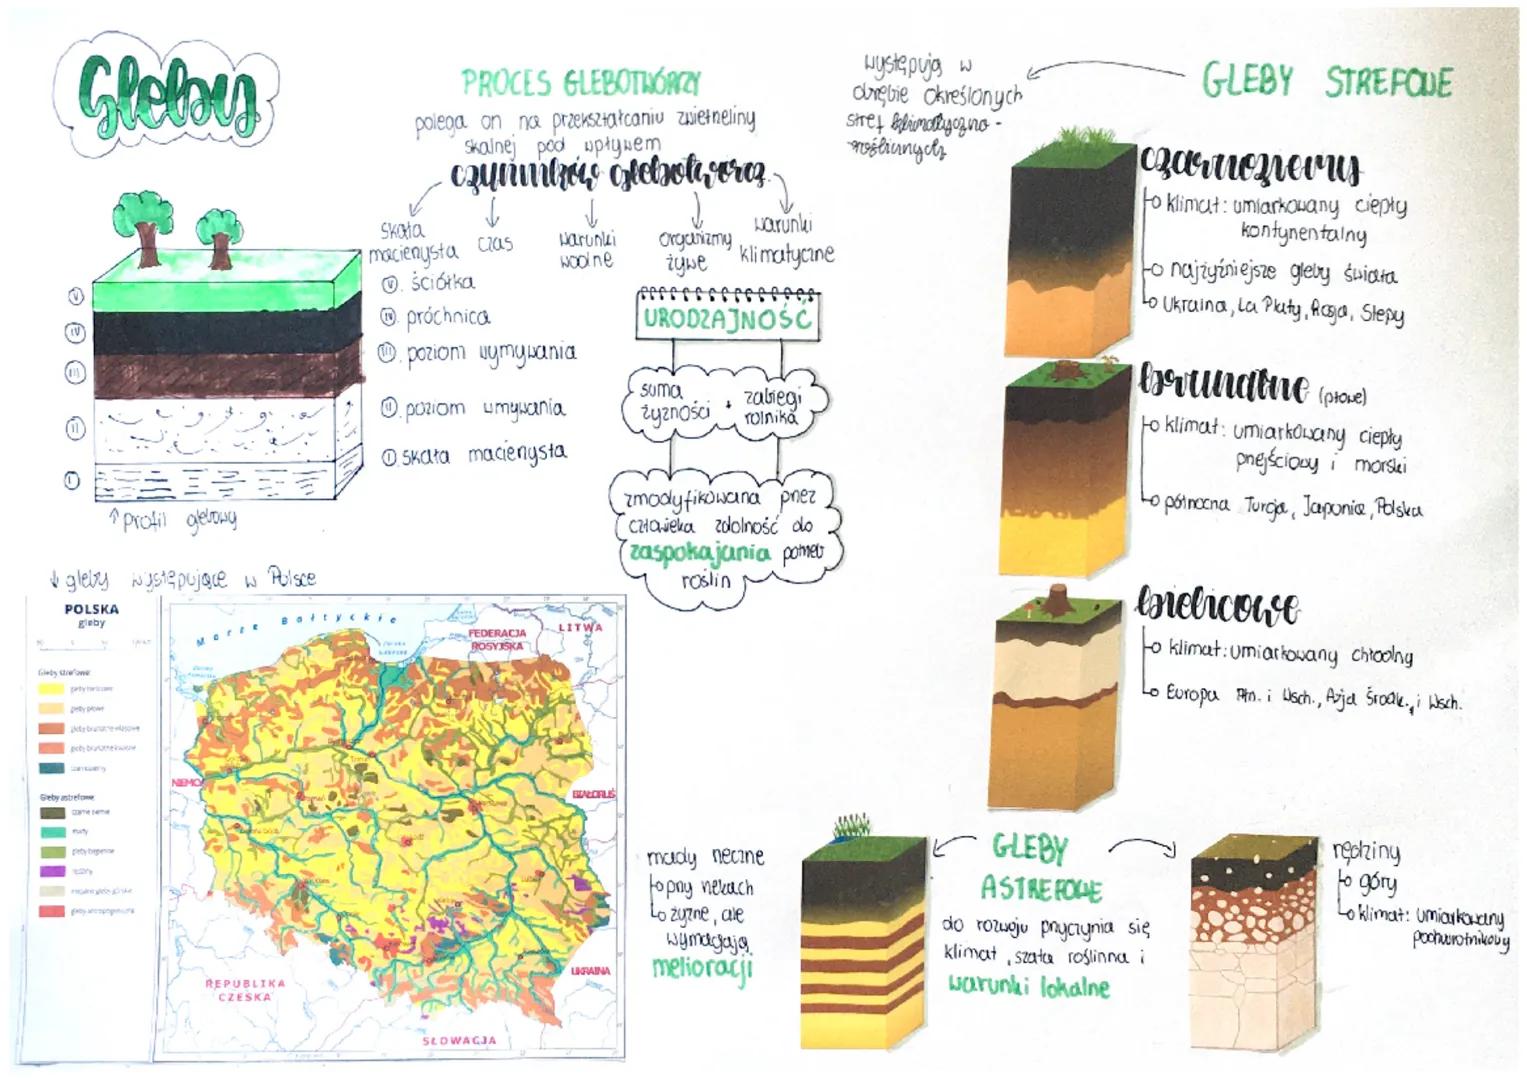 Gleby
PROCES GLEBOTWÓRCZY
polega on na przekształcaniu zwietrzeliny
skalnej pod wpływem
czynników glebotwórcz.
skała
macierzysta
czas
warunki
wodne
organizmy
żywe
warunki
klimatyczne
V. ściółka
IV. próchnica
III. poziom wymywania
II. poziom wmywania
I. skała macierzysta
V
IV
III
II
I
↑ profil glebowy
URODZAJNOŚĆ
suma
żyzności + zabiegi
rolnika
zmodyfikowana przez
człowieka zdolność do
zaspokajania potrzeb
roślin
występują w
obrębie określonych
stref klimatyczno-
roślinnych
GLEBY STREFOWE
czarnoziemy
↳ klimat: umiarkowany ciepły
kontynentalny
↳ najżyźniejsze gleby świata
↳ Ukraina, La Platy, Rosja, Stepy
brunatne (płowe)
↳ klimat: umiarkowany ciepły
przejściowy i morski
↳ północna Turcja, Japonia, Polska
bielicowe
↳ klimat: umiarkowany chłodny
↳ Europa Płn. i Wsch., Azja Środk. i Wsch.
GLEBY
ASTREFOWE
do rozwoju przyczynia się
klimat, szata roślinna i
warunki lokalne
mady rzeczne
↳ przy rzekach
↳ żyzne, ale
wymagają
melioracji
rędziny
↳ góry
↳ klimat: umiarkowany
podzwrotnikowy
↓ gleby występujące w Polsce
POLSKA
gleby
Gleby strefowe
gleby bielicowe
gleby płowe
gleby brunatne właściwe
gleby brunatne kwaśne
czarnoziemy
Gleby astrefowe
czarne ziemie
mady
gleby bagienne
rędziny
inicjalne gleby górskie
gleby antropogeniczne
Morze Bałtyckie
FEDERACJA
ROSYJSKA
LITWA
NIEMCY
BIAŁORUŚ
UKRAINA
REPUBLIKA
CZESKA
SŁOWACJA